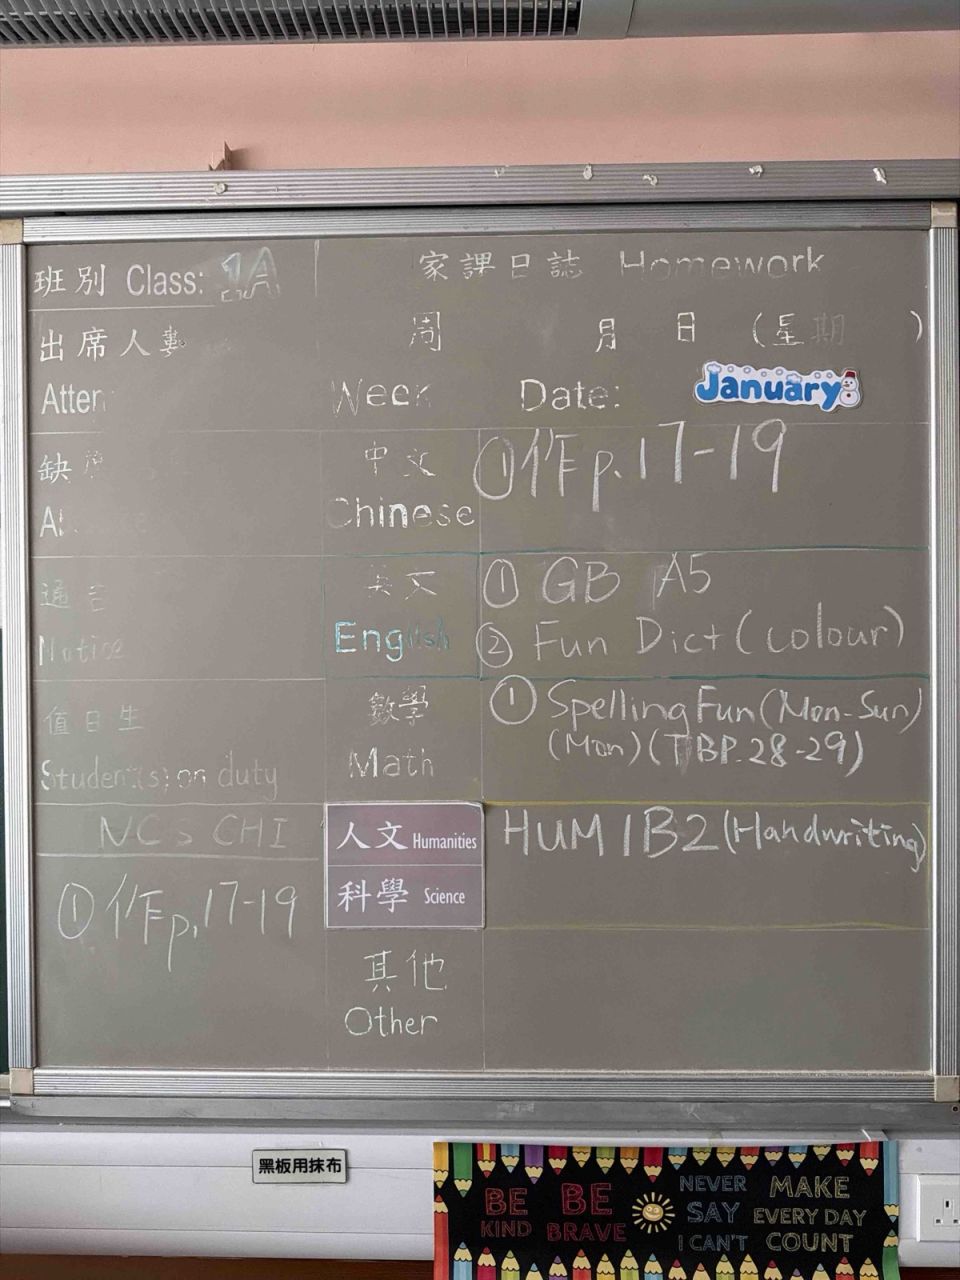 班別 Class: 1A
家課日誌 Homework
出席人數
周 月 日 (星期 )
Week Date: January
中文 ①作p.17-19
缺
Chinese
通告
英文 ① GB A5
Notice
English ② Fun Dict (colour)
值日生
數學 ① Spelling Fun (Mon-Sun)
(Mon) (TBP.28-29)
Student(s) on duty
Math
NCS CHI
人文 Humanities HUM 1B2 (Handwriting)
① 作p.17-19
科學 Science
其他
Other
黑板用抹布
BE KIND
BE BRAVE
NEVER SAY I CAN'T
MAKE EVERY DAY COUNT